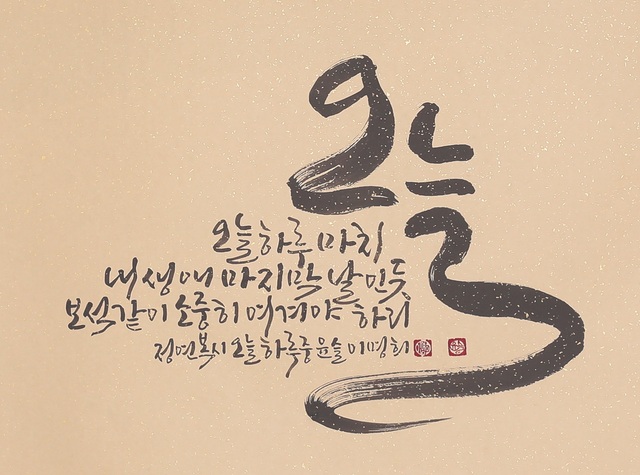 오늘
오늘 하루 마치
내 생애 마지막 날인듯
보석같이 소중히 여겨야 하리
정연복 시 오늘 하루 중 윤슬 이명희